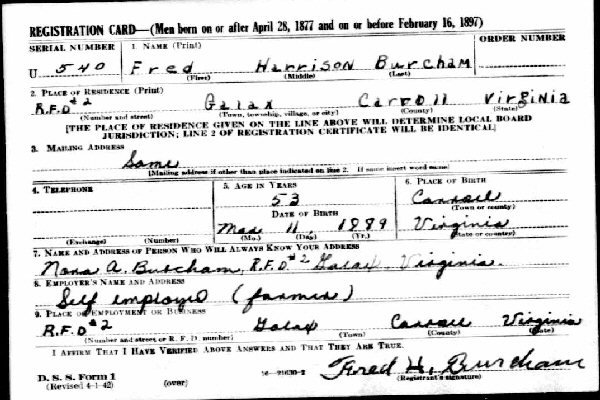 REGISTRATION CARD—(Men born on or after April 28, 1877 and on or before February 16, 1897)
SERIAL NUMBER 1. NAME (Print) ORDER NUMBER
U 540 Fred Harrison Burcham
(First) (Middle) (Last)
2. PLACE OF RESIDENCE (Print)
R.F.D #2 Galax Carroll Virginia
(Number and street) (Town, township, village, or city) (County) (State)
[THE PLACE OF RESIDENCE GIVEN ON THE LINE ABOVE WILL DETERMINE LOCAL BOARD
JURISDICTION; LINE 2 OF REGISTRATION CERTIFICATE WILL BE IDENTICAL]
3. MAILING ADDRESS
Same
[Mailing address if other than place indicated on line 2. If same insert word same]
4. TELEPHONE 5. AGE IN YEARS 6. PLACE OF BIRTH
53 Carroll
DATE OF BIRTH (Town or county)
11, 1889 Virginia
(Exchange) (Number) (Mo.) (Day) (Yr.) (State or country)
7. NAME AND ADDRESS OF PERSON WHO WILL ALWAYS KNOW YOUR ADDRESS
Nora A. Burcham, R.F.D #2 Galax, Virginia.
8. EMPLOYER'S NAME AND ADDRESS
Self employed (farmer)
9. PLACE OF EMPLOYMENT OR BUSINESS
R.F.D #2 Galax Carroll Virginia
(Number and street or R. F. D. number) (Town) (County) (State)
I AFFIRM THAT I HAVE VERIFIED ABOVE ANSWERS AND THAT THEY ARE TRUE.
D. S. S. Form 1
(Revised 4-1-42) (over) 16—21630-2 Fred H. Burcham
(Registrant's signature)